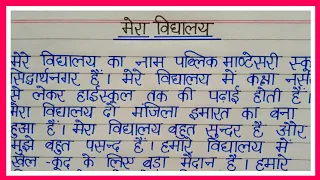 मेरा विद्यालय
मेरे विद्यालय का नाम पब्लिक माण्टेसरी स्कू
सिद्धार्थनगर हैं। मेरे विद्यालय में कक्षा नर्स
से लेकर हाईस्कूल तक की पढ़ाई होती हैं।
मेरा विद्यालय दो मंजिला इमारत का बना
हुआ हैं। मेरा विद्यालय बहुत सुन्दर है और
मुझे बहुत पसन्द हैं। हमारे विद्यालय में
खेल-कूद के लिए बड़ा मैदान हैं। हमारे